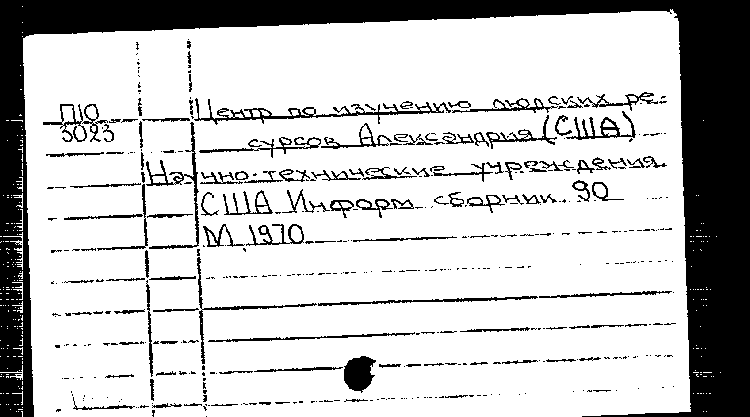 П10 Центр по изучению людских ре-
3023 сурсов Александрия (США)
Научно-технические учреждения
США Информ сборник. 90
М. 1970